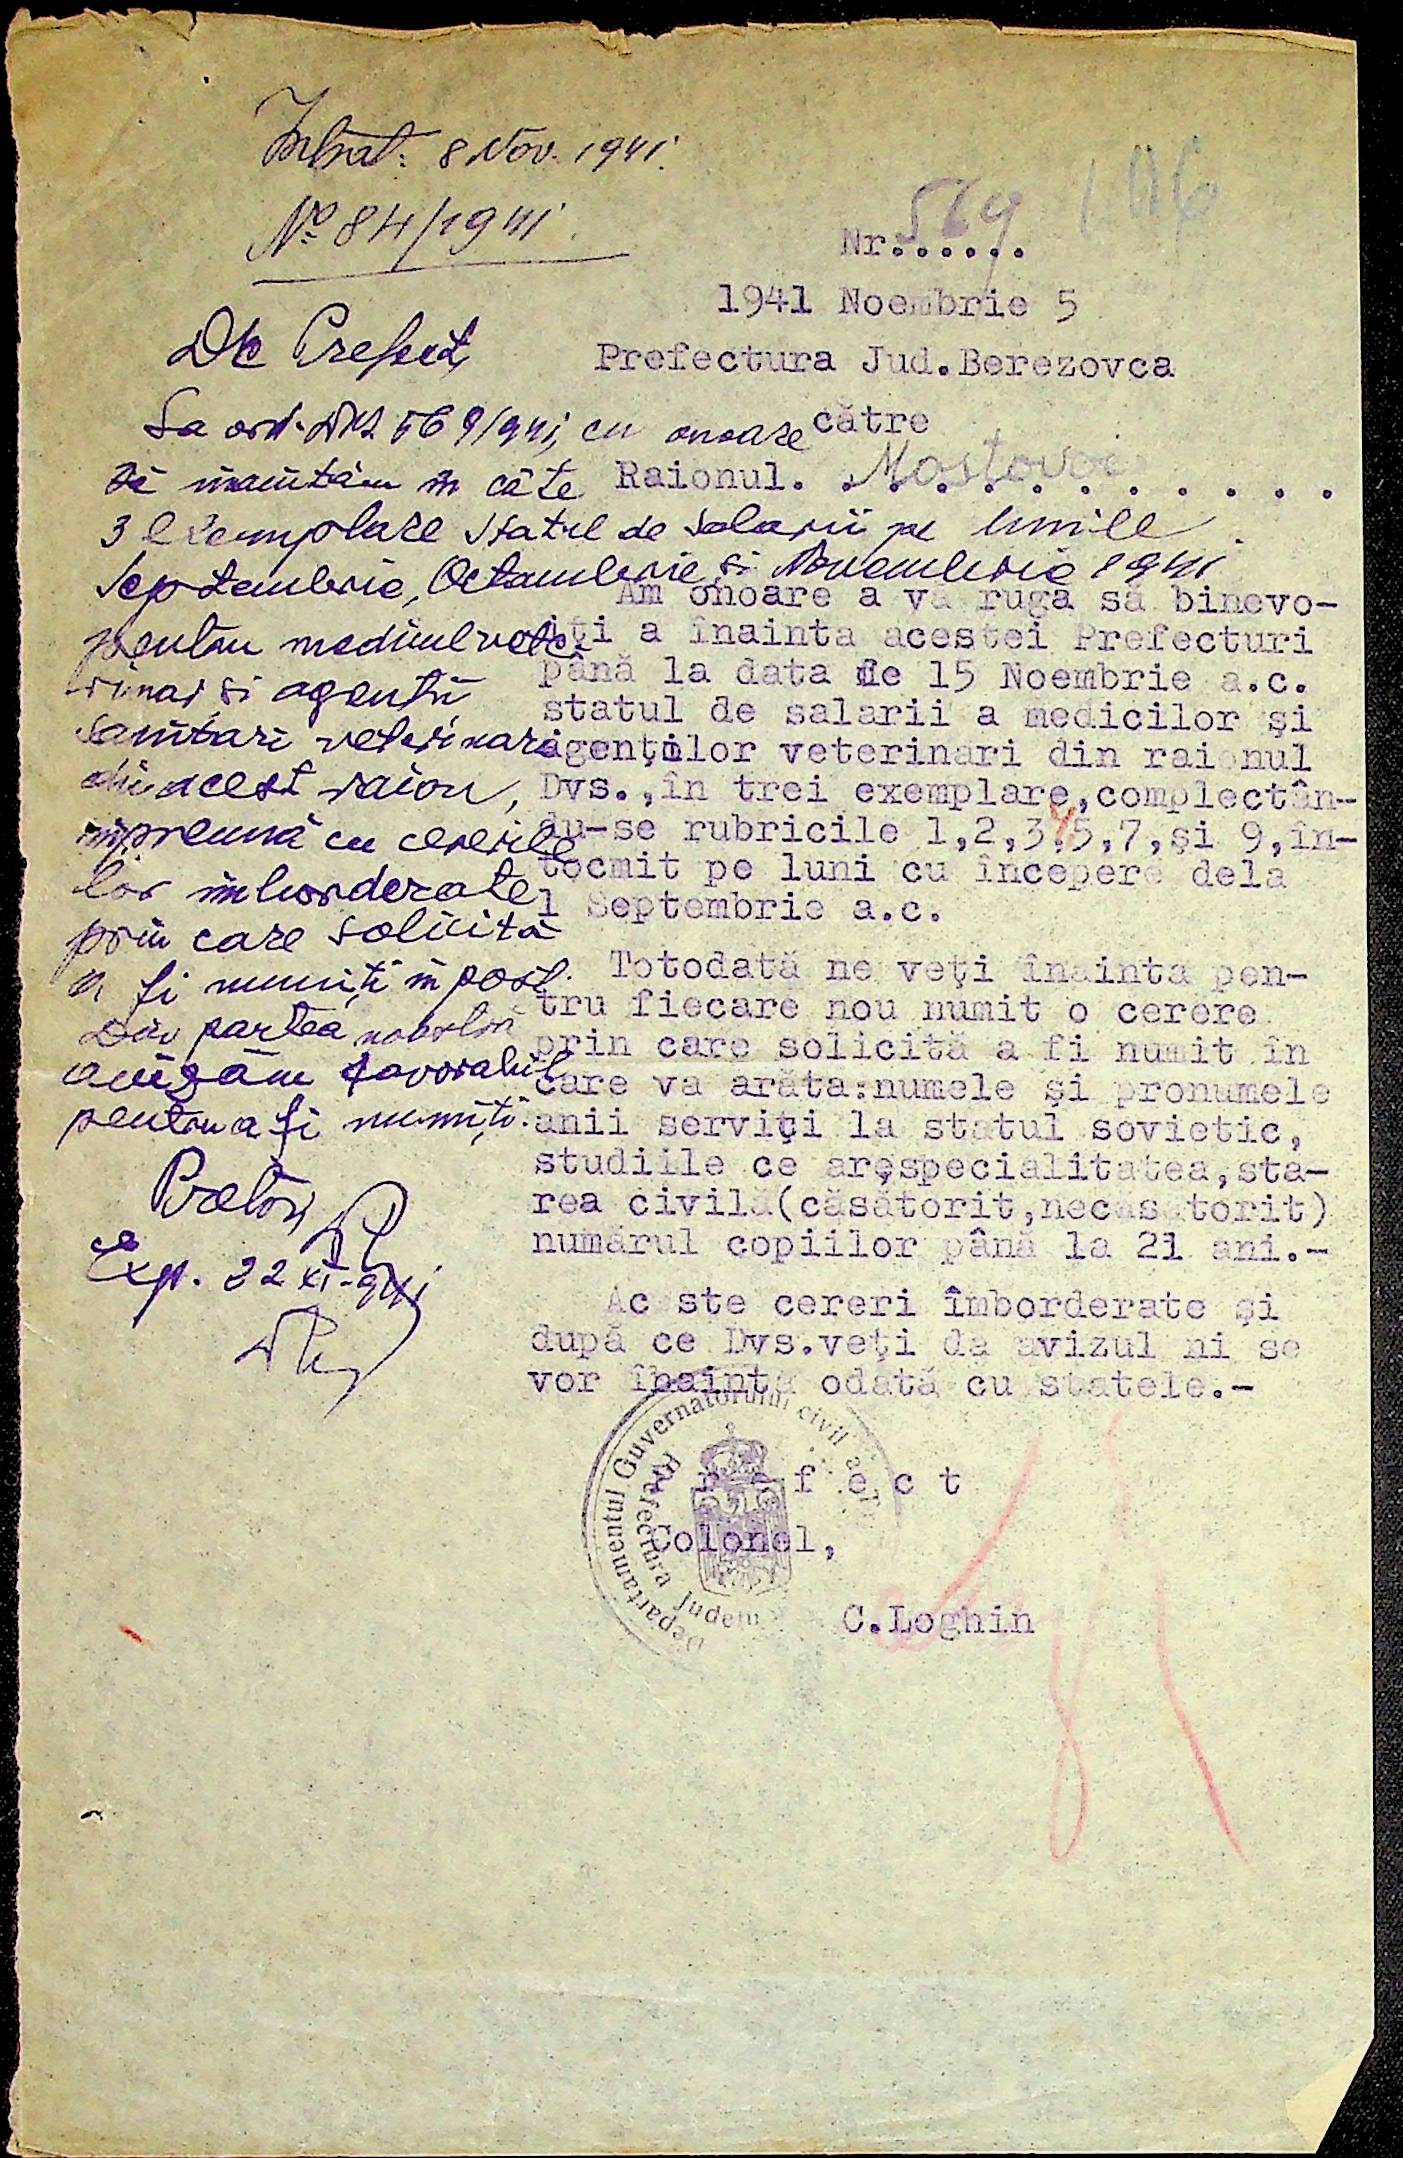 Intrat: 8 Nov. 1941.
No 84/1941.
Nr. 569
106
1941 Noembrie 5
Prefectura Jud.Berezovca
către
Raionul. Mostovoi
Am onoare a vă ruga să binevo-
iți a înainta acestei Prefecturi
până la data de 15 Noembrie a.c.
statul de salarii a medicilor și
agenților veterinari din raionul
Dvs.,în trei exemplare,complectân-
du-se rubricile 1,2,3,5,7,și 9,în-
tocmit pe luni cu începere dela
1 Septembrie a.c.
Totodată ne veți înainta pen-
tru fiecare nou numit o cerere
prin care solicită a fi numit în
care va arăta:numele și pronumele
anii serviți la statul sovietic,
studiile ce are,specialitatea,sta-
rea civilă(căsătorit,necăsătorit)
numărul copiilor până la 21 ani.-
Aceste cereri îmborderate și
după ce Dvs.veți da avizul ni se
vor înainta odată cu statele.-
Prefect
Colonel,
C.Loghin
Departamentul Guvernatorului civil al
Prefectura Județu
Dle Prefect,
La ord. Nr 569/941, cu onoare
vă înaintăm în câte
3 exemplare statul de salarii pe lunile
Septembrie, Octombrie și Novembrie 1941
pentru medicul vete-
rinar și agenții
sanitari veterinari
din acest raion,
împreună cu cererile
lor imborderate
prin care solicită
a fi numiți în post.
Din partea noastră
avizăm favorabil
pentru a fi numiți.
Pretor,
Exp. 22 XI-941